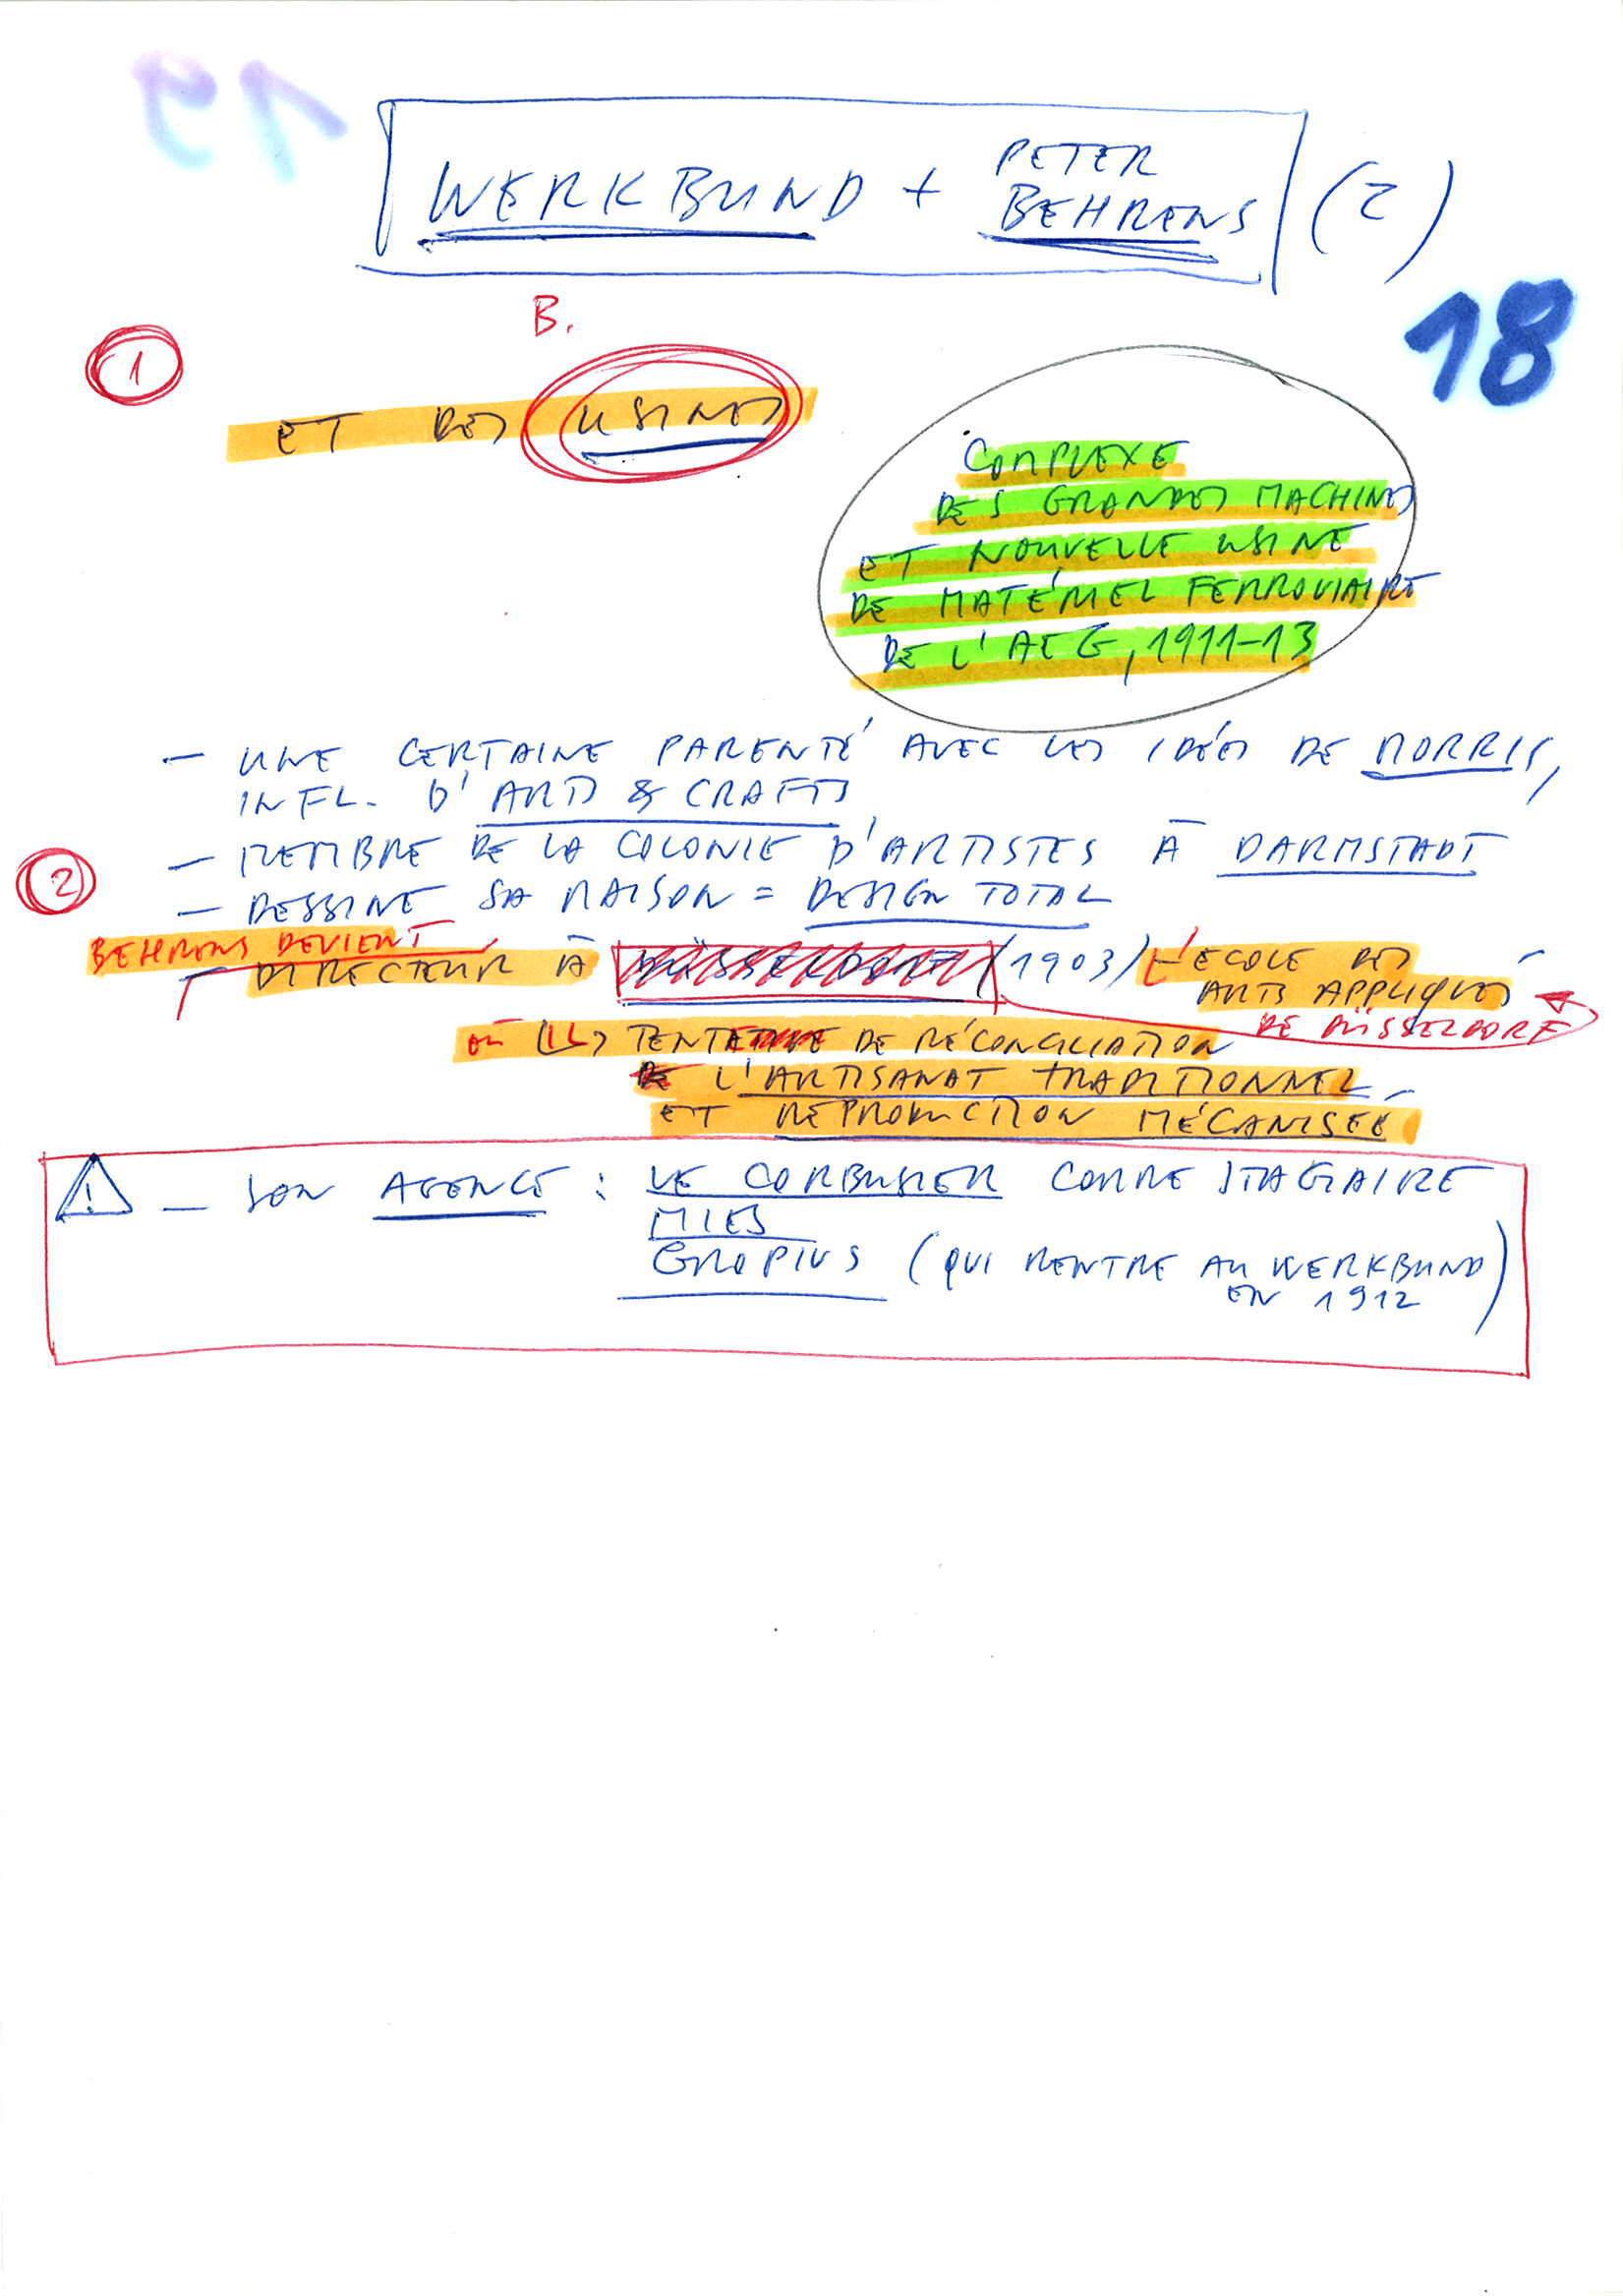 19
PETER
WERKBUND + BEHRENS (2)
18
B.
1
ET DES USINES
COMPLEXE
DES GRANDES MACHINES
ET NOUVELLE USINE
DE MATÉRIEL FERROVIAIRE
DE L'AEG, 1911-13
- UNE CERTAINE PARENTÉ AVEC LES IDÉES DE MORRIS,
INFL. D'ARTS & CRAFTS
- MEMBRE DE LA COLONIE D'ARTISTES À DARMSTADT
2
- DESSINE SA MAISON = DESIGN TOTAL
BEHRENS DEVIENT
DIRECTEUR À DÜSSELDORF (1903) L'ECOLE DES
ARTS APPLIQUÉS
DE DÜSSELDORF
où (IL) TENTE DE RÉCONCILIATION
DE L'ARTISANAT TRADITIONNEL
ET REPRODUCTION MÉCANISÉE
! - SON AGENCE : LE CORBUSIER COMME STAGIAIRE
MIES
GROPIUS (QUI RENTRE AU WERKBUND
EN 1912)